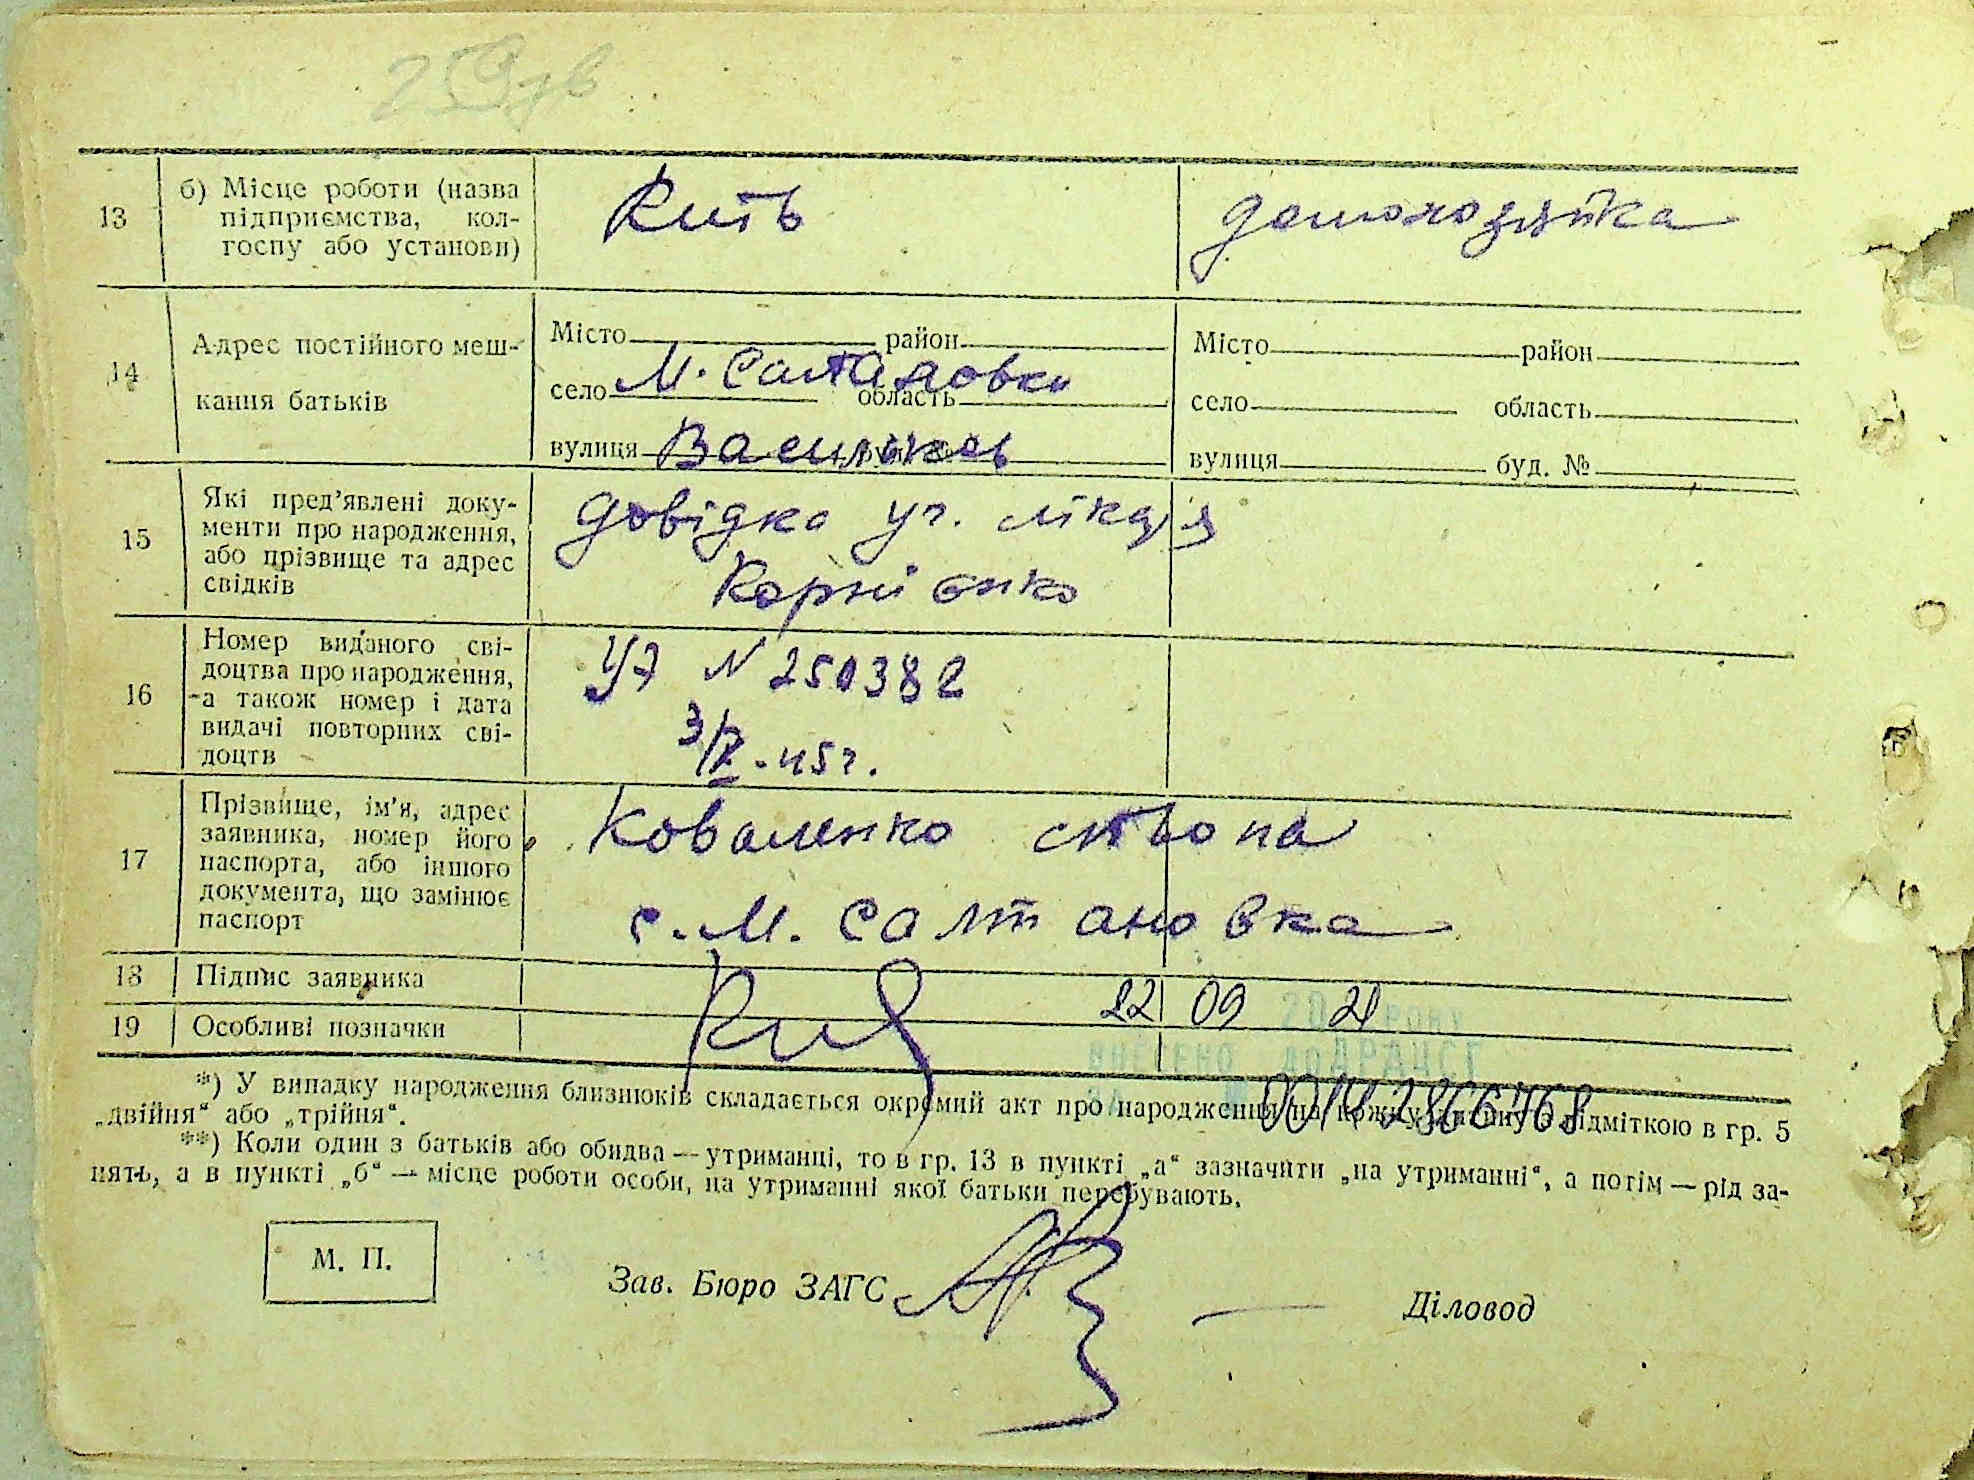 259 зв
13
б) Місце роботи (назва
підприємства, кол-
госпу або установи)
домохозяйка
14
Адрес постійного меш-
кання батьків
Місто район
село М. Салтановка область
вулиця Васильков
Місто район
село область
вулиця буд. №
15
Які пред'явлені доку-
менти про народження,
або прізвище та адрес
свідків
Довідка уч. лікаря
Корнієнко
16
Номер виданого сві-
доцтва про народження,
а також номер і дата
видачі повторних сві-
доцтв
N 250382
3/X-45 г.
17
Прізвище, ім'я, адрес
заявника, номер його
паспорта, або іншого
документа, що замінює
паспорт
Коваленко
с. М. Салтановка
18 Підпис заявника
22 09 2021 РОКУ
19 Особливі позначки
ВНЕСЕНО ДО ДРАЦСГ
*) У випадку народження близнюків складається окремий акт про народження на кожну дитину з відміткою в гр. 5
„двійня“ або „трійня“.
**) Коли один з батьків або обидва — утриманці, то в гр. 13 в пункті „а“ зазначити „на утриманні“, а потім — рід за-
нять, а в пункті „б“ — місце роботи особи, на утриманні якої батьки перебувають.
М. П.
Зав. Бюро ЗАГС
Діловод